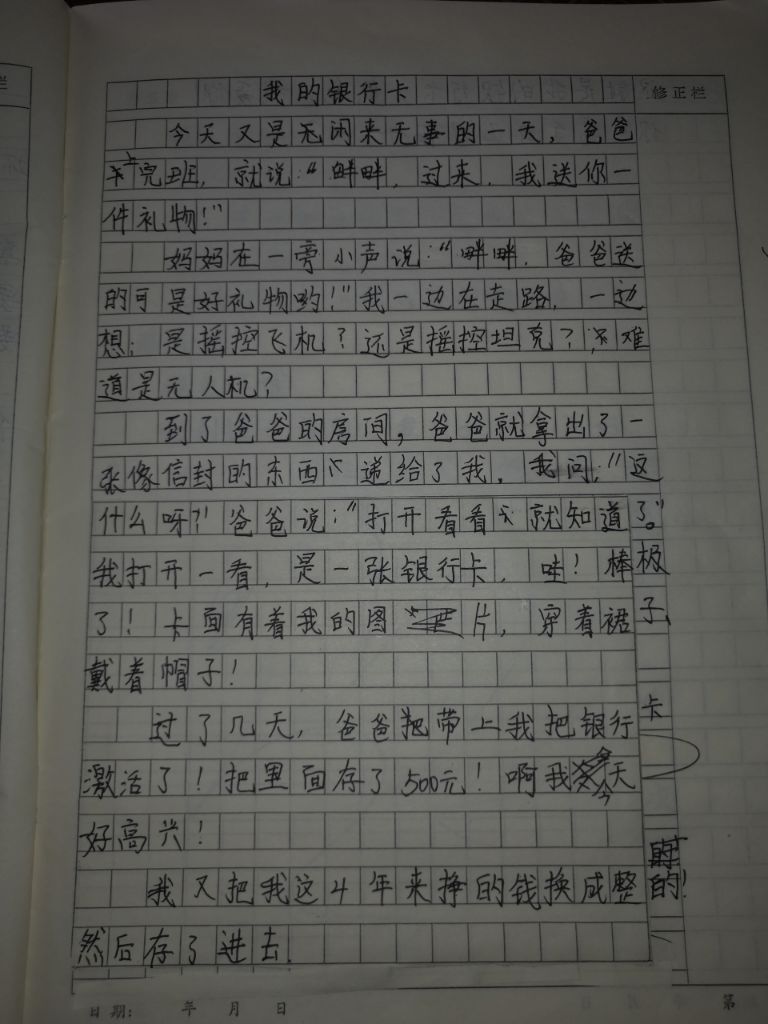 修正栏
我的银行卡
今天又是无闲来无事的一天，爸爸
完班，就说：“畔畔，过来，我送你一
件礼物！”
妈妈在一旁小声说：“畔畔，爸爸送
的可是好礼物哟！”我一边在走路，一边
想：是摇控飞机？还是摇控坦克？难
道是无人机？
到了爸爸的房间，爸爸就拿出了一
张像信封的东西递给了我，我问：“这
什么呀？”爸爸说：“打开看看就知道了。”
我打开一看，是一张银行卡，哇！棒极
了！卡面有着我的图片，穿着裙子、
戴着帽子！
过了几天，爸爸把带上我把银行卡
激活了！把里面存了500元！啊我今天
好高兴！
我又把我这4年来挣的钱换成整的！
然后存了进去.
日期： 年 月 日
第